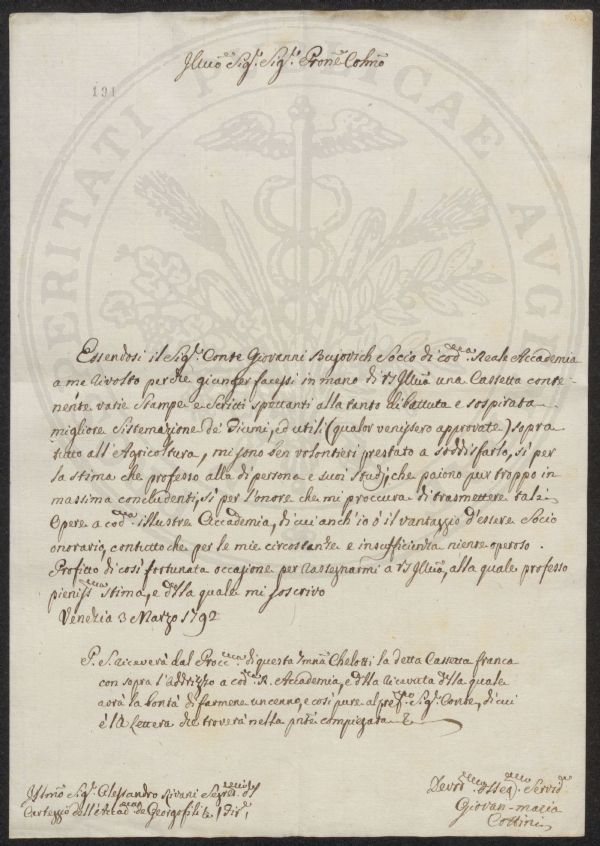 Illmõ Sig.r Sig.r Prone Colmõ
191
Essendosi il Sig.r Conte Giovanni Bujovich Socio di cod.a Reale Accademia
a me rivolto perchè giunger facessi in mano di VS Illmã una Cassetta conte-
nente varie Stampe e Scritti spettanti alla tanto dibattuta e sospirata
migliore Sistemazione de' ed utili (qualor venissero approvate) sopra
tutto all'Agricoltura, mi sono ben volontieri prestato a soddisfarlo, sì per
la stima che professo alla di persona e suoi Studj, che paiono pur troppo in
massima concludenti, sì per l'onore che mi proccura di trasmettere tale
Opere a cod.a illustre Accademia, di cui anch'io ò il vantaggio d'essere Socio
onorario, contuttochè per le mie circostanze e insufficienza niente operoso.
Profitto di così fortunata occasione per rassegnarmi a VS Illmã, alla quale professo
pieniss.ma stima, e colla quale mi soscrivo
Venezia 3 Marzo 1792
P. S. riceverà dal Procc. di questa Chelotti la detta Cassetta franca
con sopra l'addrizzo a cod.a R. Accademia, e della ricevuta della quale
avrà la bontà di farmene un cenno, e così pure al pref.to Sig.r Conte, di cui
è la Lettera che troverà nella pnte compiegata
Sig.r Alessandro Rivani Segret.
Carteggio dell'Accad. de Georgofili
Dev. Osseq. Servid.
Giovan-maria
Cottini
VERITATI PVBLICAE AVGE